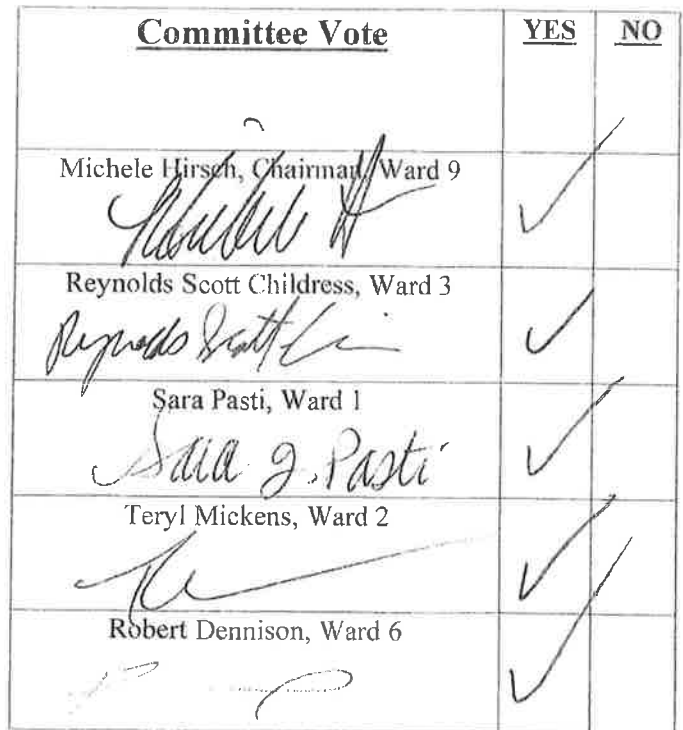 Committee Vote YES NO
Michele Hirsch, Chairman, Ward 9
Reynolds Scott Childress, Ward 3
Reynolds Scott
Sara Pasti, Ward 1
Sara J. Pasti
Teryl Mickens, Ward 2
Robert Dennison, Ward 6